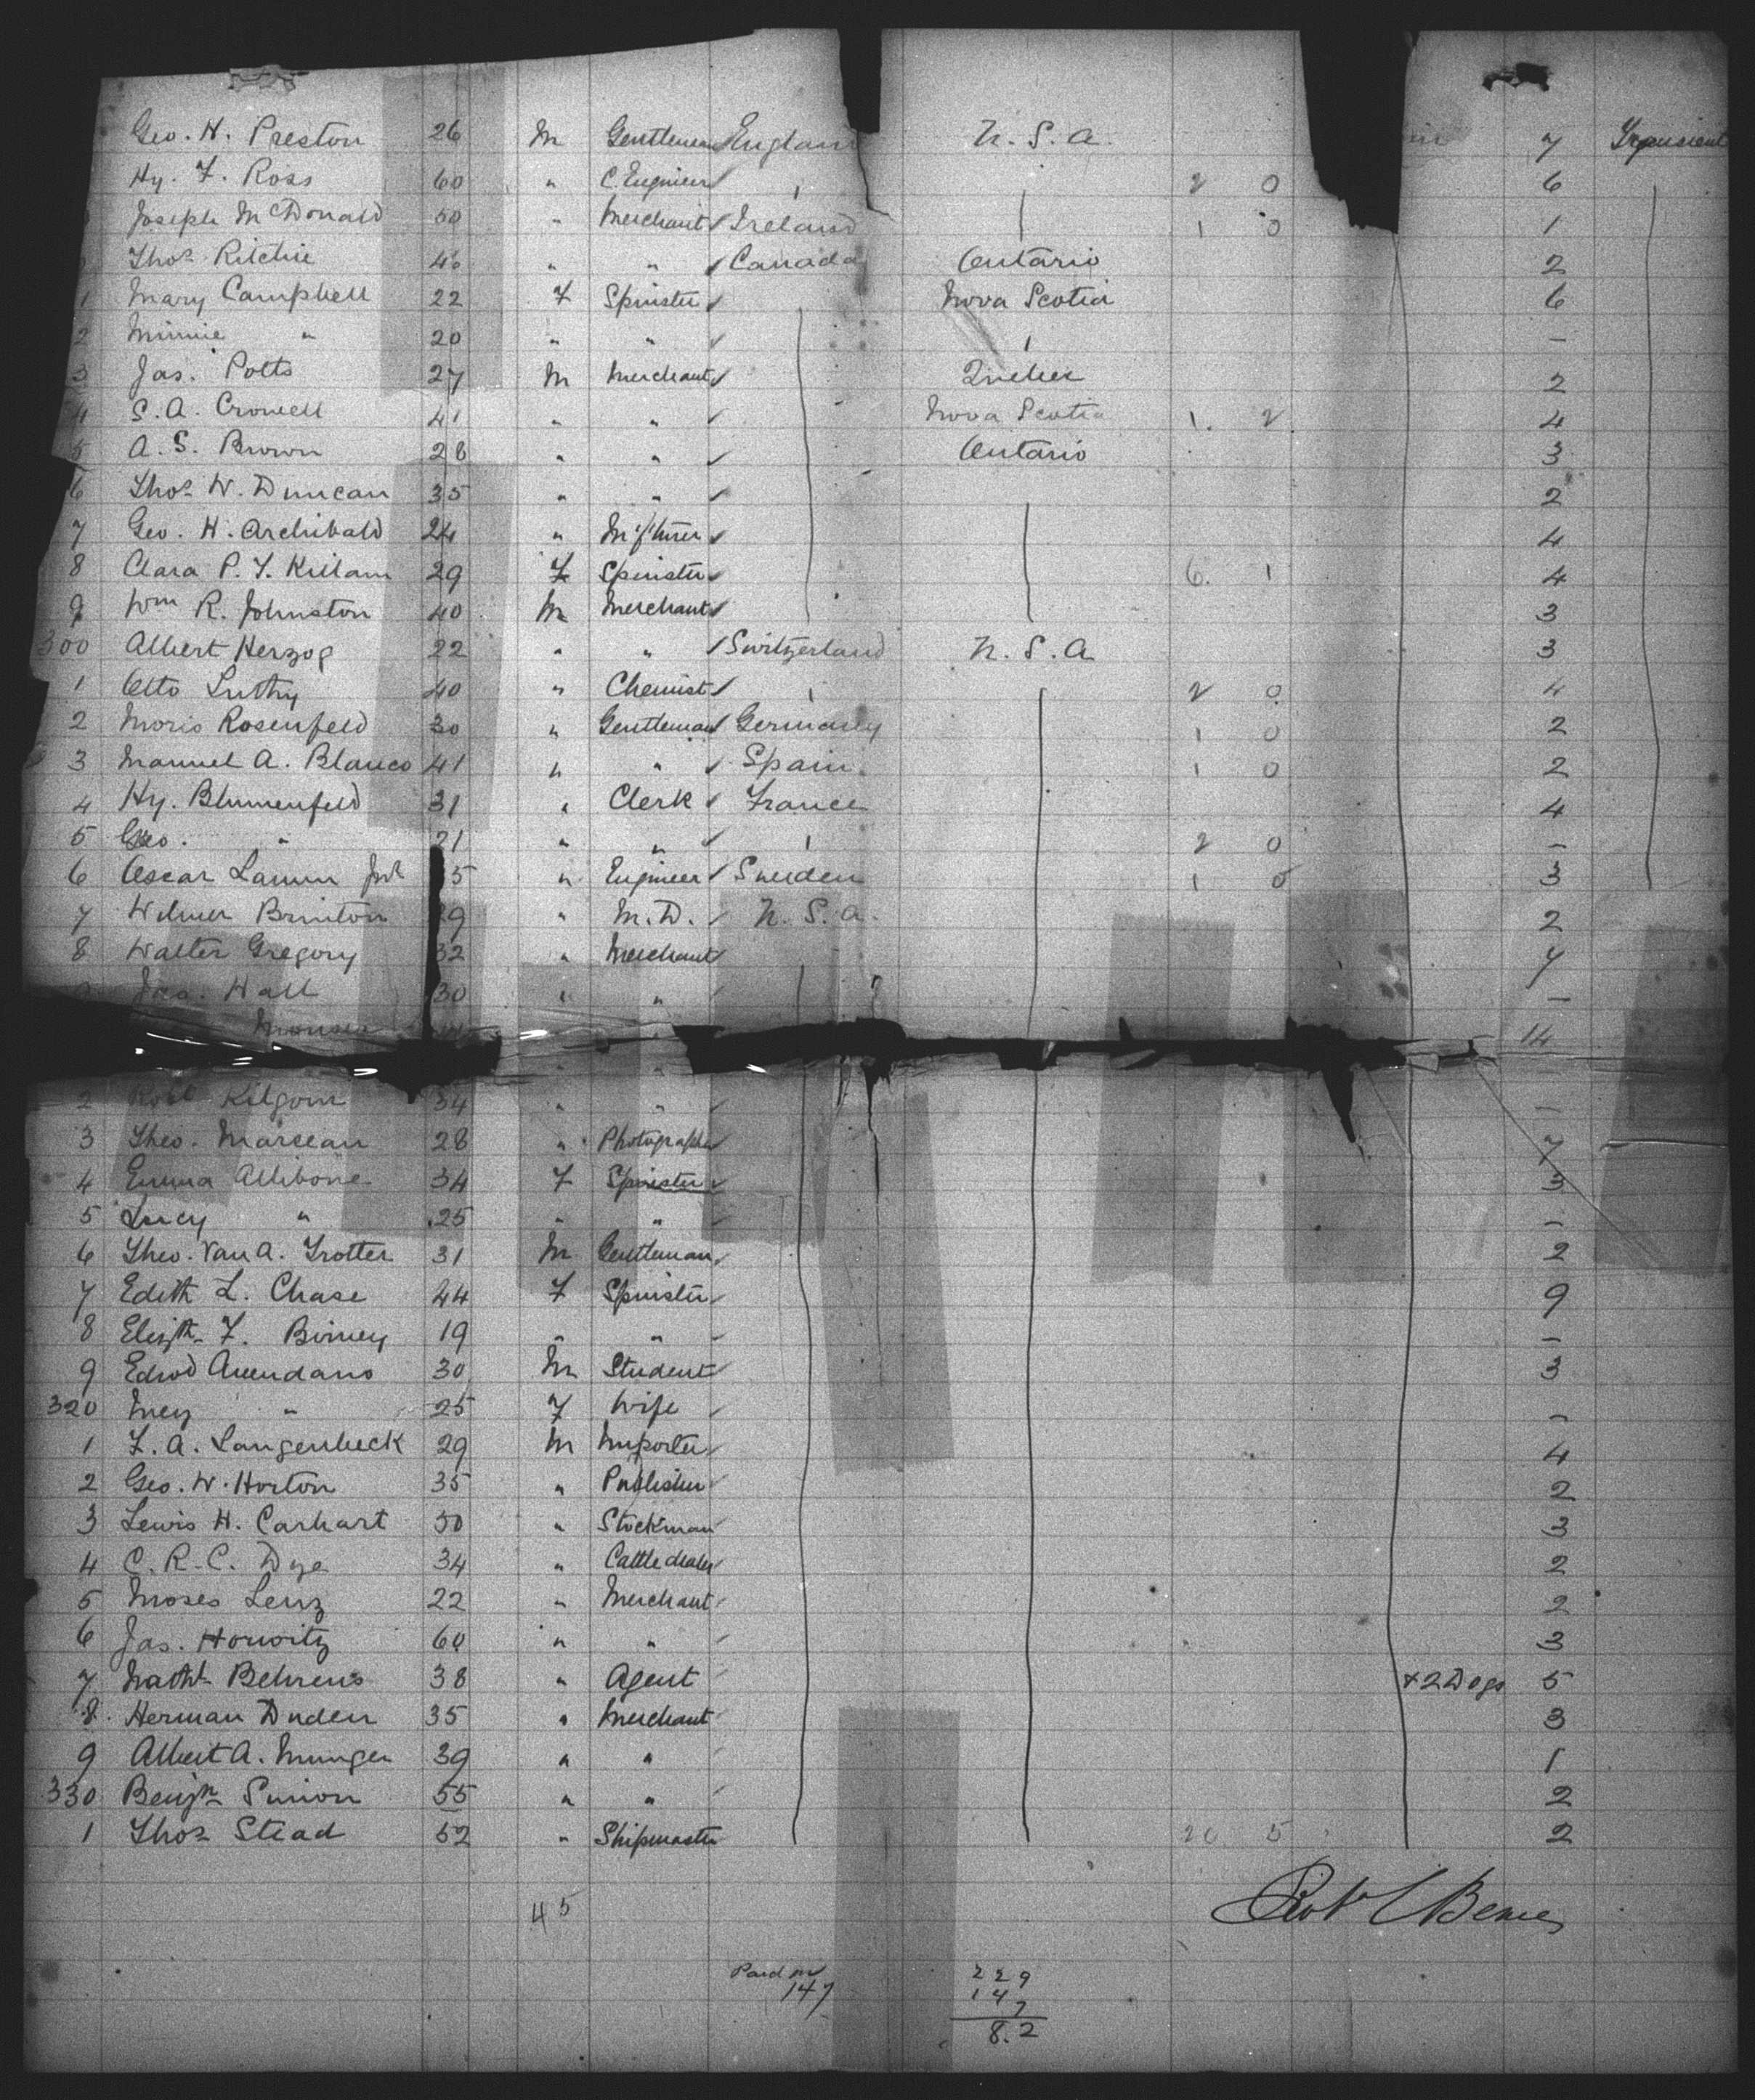 Geo. H. Preston 26 M Gentleman England U.S.A. 7 Transient
Hy. F. Ross 60 " C. Engineer 2 0 6
Joseph McDonald 50 " Merchant Ireland 1 0 1
Thos. Ritchie 46 " " Canada Ontario 2
1 Mary Campbell 22 F Spinster Nova Scotia 6
2 Minnie " 20 " " -
3 Jas. Potts 27 M Merchant Quebec 2
4 S. A. Crowell 41 " " Nova Scotia 1. 2 4
5 A. S. Brown 28 " " Ontario 3
6 Thos. W. Duncan 35 " " 2
7 Geo. H. Archibald 24 " M'f'turer 4
8 Clara P. Y. Killam 29 F Spinster 6. 1 4
9 Wm R. Johnston 40 M Merchant 3
300 Albert Herzog 22 " " Switzerland U.S.A 3
1 Otto Luthy 40 " Chemist 2 0 4
2 Moris Rosenfeld 30 " Gentleman Germany 1 0 2
3 Manuel A. Blanco 41 " " Spain 1 0 2
4 Hy. Blumenfeld 31 " Clerk France 4
5 Geo. " 21 " " 2 0 -
6 Oscar Lamm Jnr 35 " Engineer Sweden 1 0 3
7 Wilmer Brinton 29 " M.D. U.S.A. 2
8 Walter Gregory 32 " Merchant 7
Jas. Hall 30 " " -
14
" "
2 Robt Kilgour 34 " " -
3 Theo. Marceau 28 " Photographer 7
4 Emma Allibone 34 F Spinster 3
5 Lucy " 25 " " -
6 Theo. Van A. Trotter 31 M Gentleman 2
7 Edith L. Chase 44 F Spinster 9
8 Elizth. F. Birney 19 " " -
9 Edwd Avendano 30 M Student 3
320 Inez " 25 F Wife -
1 F. A. Langenbeck 29 M Importer 4
2 Geo. W. Horton 35 " Publisher 2
3 Lewis H. Carhart 50 " Stockman 3
4 C. R. C. Dye 34 " Cattle dealer 2
5 Moses Lenz 22 " Merchant 2
6 Jas. Horwitz 60 " " 3
7 Nathl Behrens 38 " Agent +2 Dogs 5
8 Herman Duden 35 " Merchant 3
9 Albert A. Munger 39 " " 1
330 Benjn Simon 55 " " 2
1 Thos Stead 52 " Shipmaster 20 5 2
45
Paid on 229
147 147
8.2